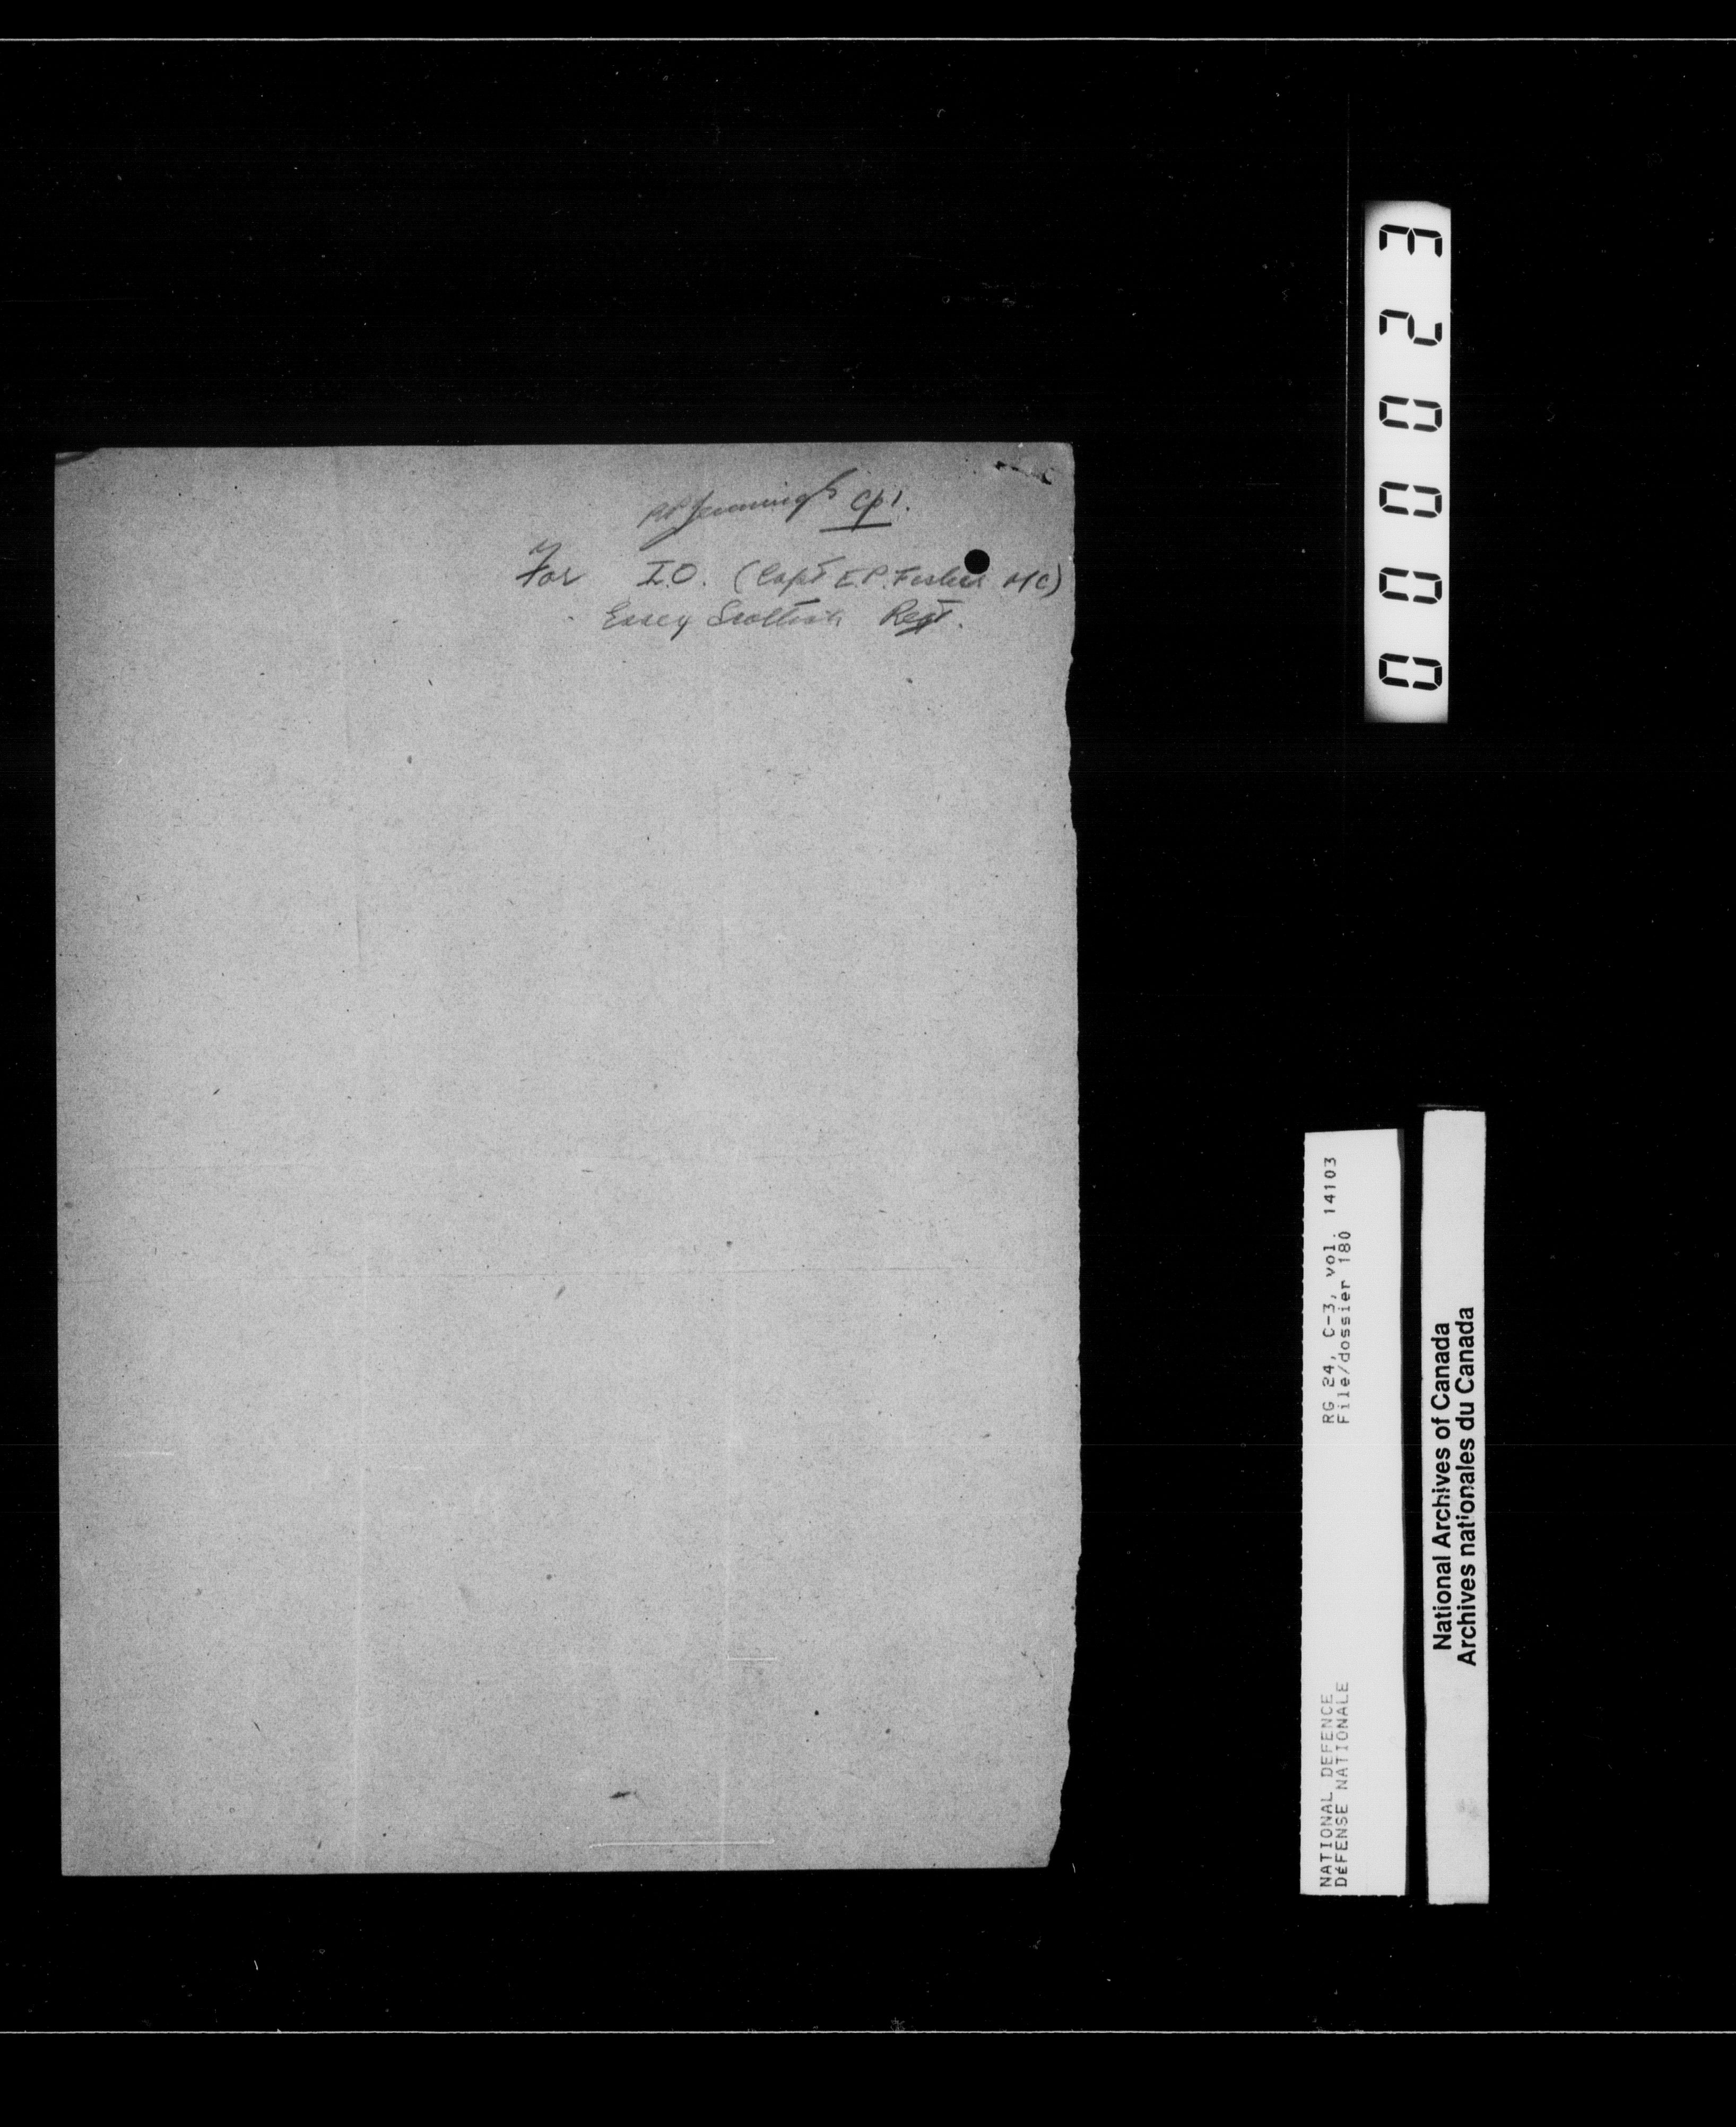 Jennings Cpl.
For I.O. (Capt E.P. Fisher MC)
Essex Scottish Regt.
000023
RG 24, C-3, vol. 14103
File/dossier 180
NATIONAL DEFENCE
DéFENSE NATIONALE
National Archives of Canada
Archives nationales du Canada